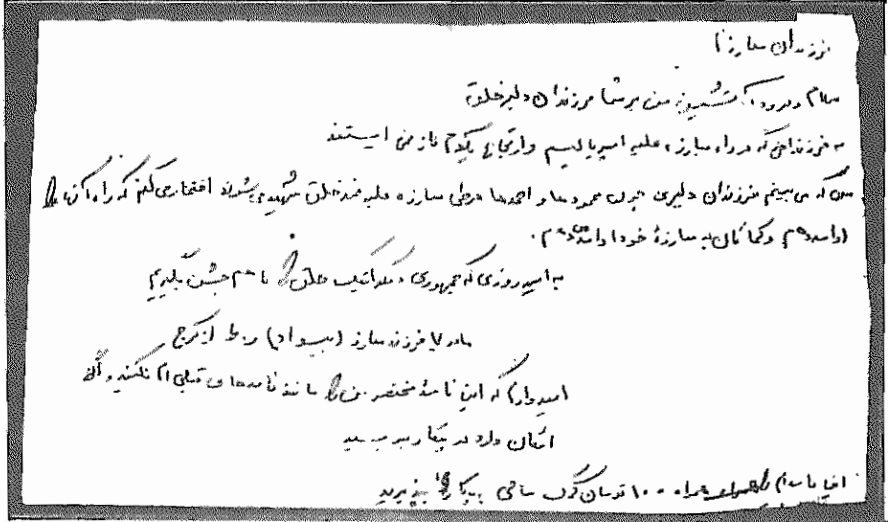 فرزندان مبارزم
سلام و درود آتشین من بر شما فرزندان دلیر خلق
به فرزندانی که در راه مبارزه علیه امپریالیسم و ارتجاع یکدم از پا نمی ایستند
من که می بینم فرزندان دلیری چون محمودها و احمدها در طی مبارزه علیه ضد خلق شهید می شوند افتخار می کنم که راه آنها را
ادامه دهم و کماکان به مبارزهٔ خود ادامه دهم.
به امید روزی که جمهوری دمکراتیک خلق را با هم جشن بگیریم
مادر ۷ فرزند مبارز (بیسواد) ر.ط از کرج
امیدوارم که این نامهٔ مختصر من را مانند نامه های قبلی ام نکنید و اگر
امکان دارد در پیکار بنویسید
همراه ۱۰۰ تومان کمک مالی به پیکار را بپذیرید